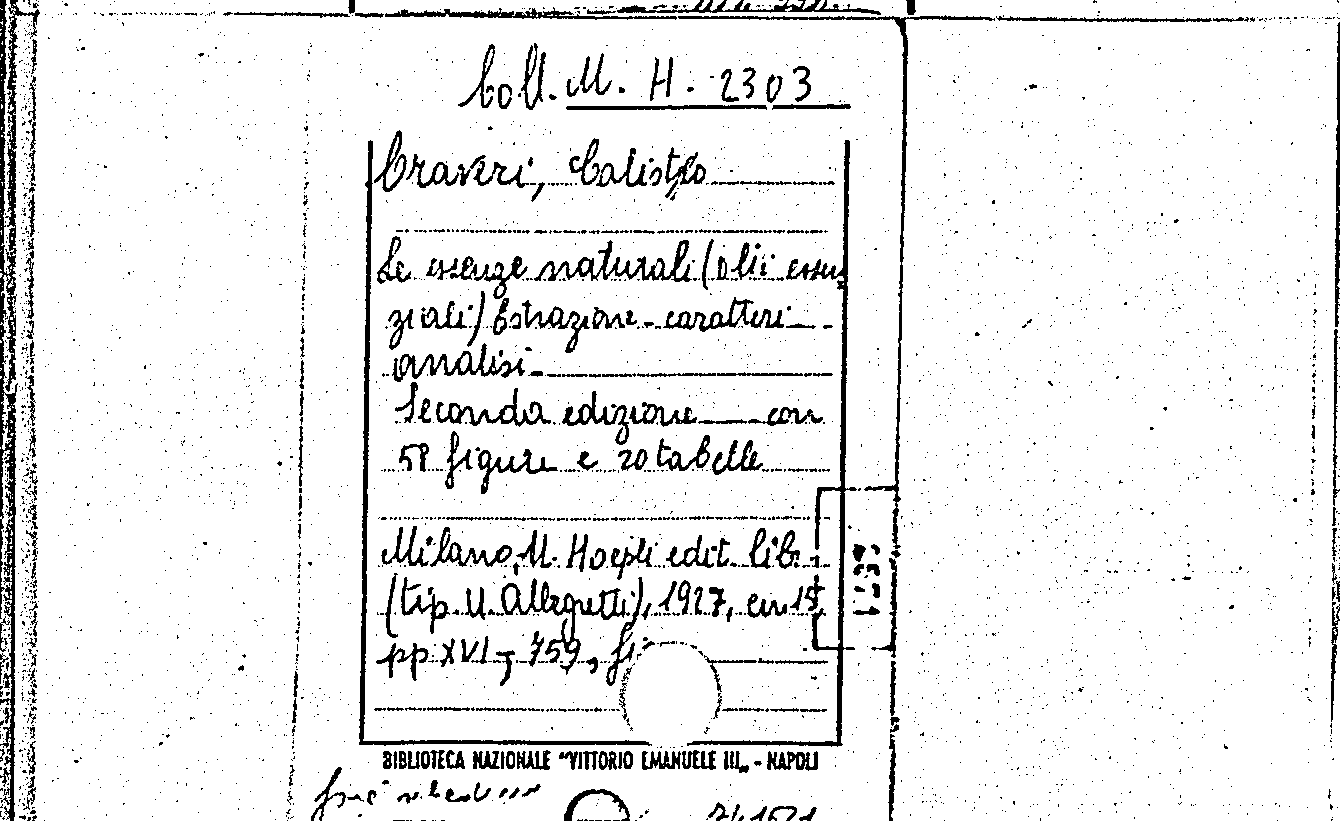 Coll. M. H. 2303
Craveri, Calisto
Le essenze naturali (olii essen
ziali) Estrazione - caratteri -
analisi -
Seconda edizione con
58 figure e 20 tabelle
Milano, U. Hoepli edit. libr.
(tip. U. Allegretti), 1927, cm 15,
pp XVI, 759,
BIBLIOTECA NAZIONALE "VITTORIO EMANUELE III" - NAPOLI